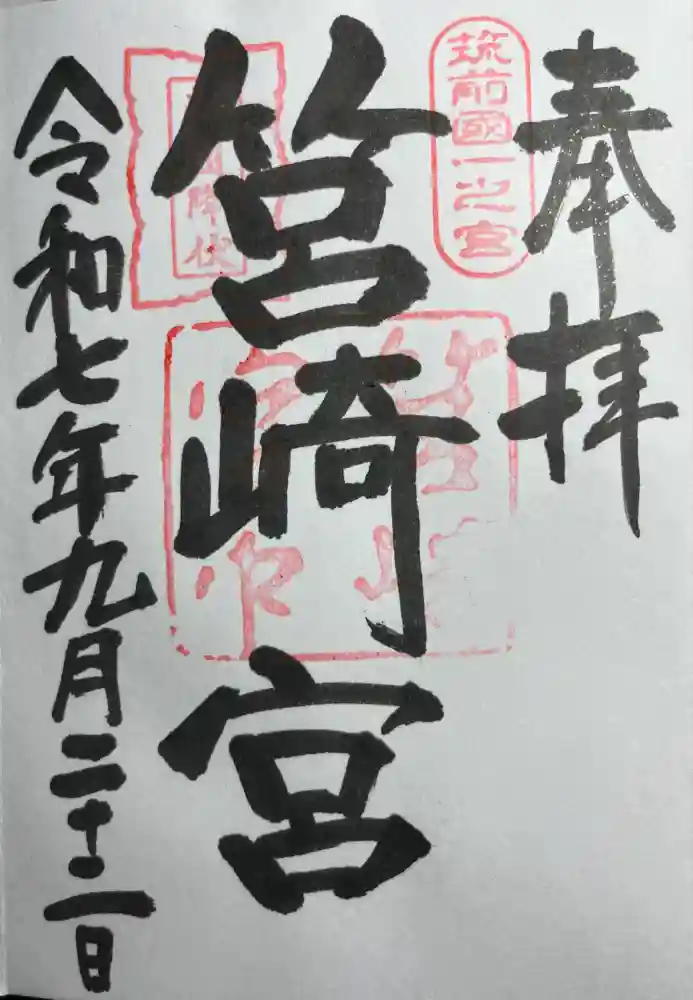 奉拝
筑前國一之宮
筥崎宮
降伏
令和七年九月二十二日